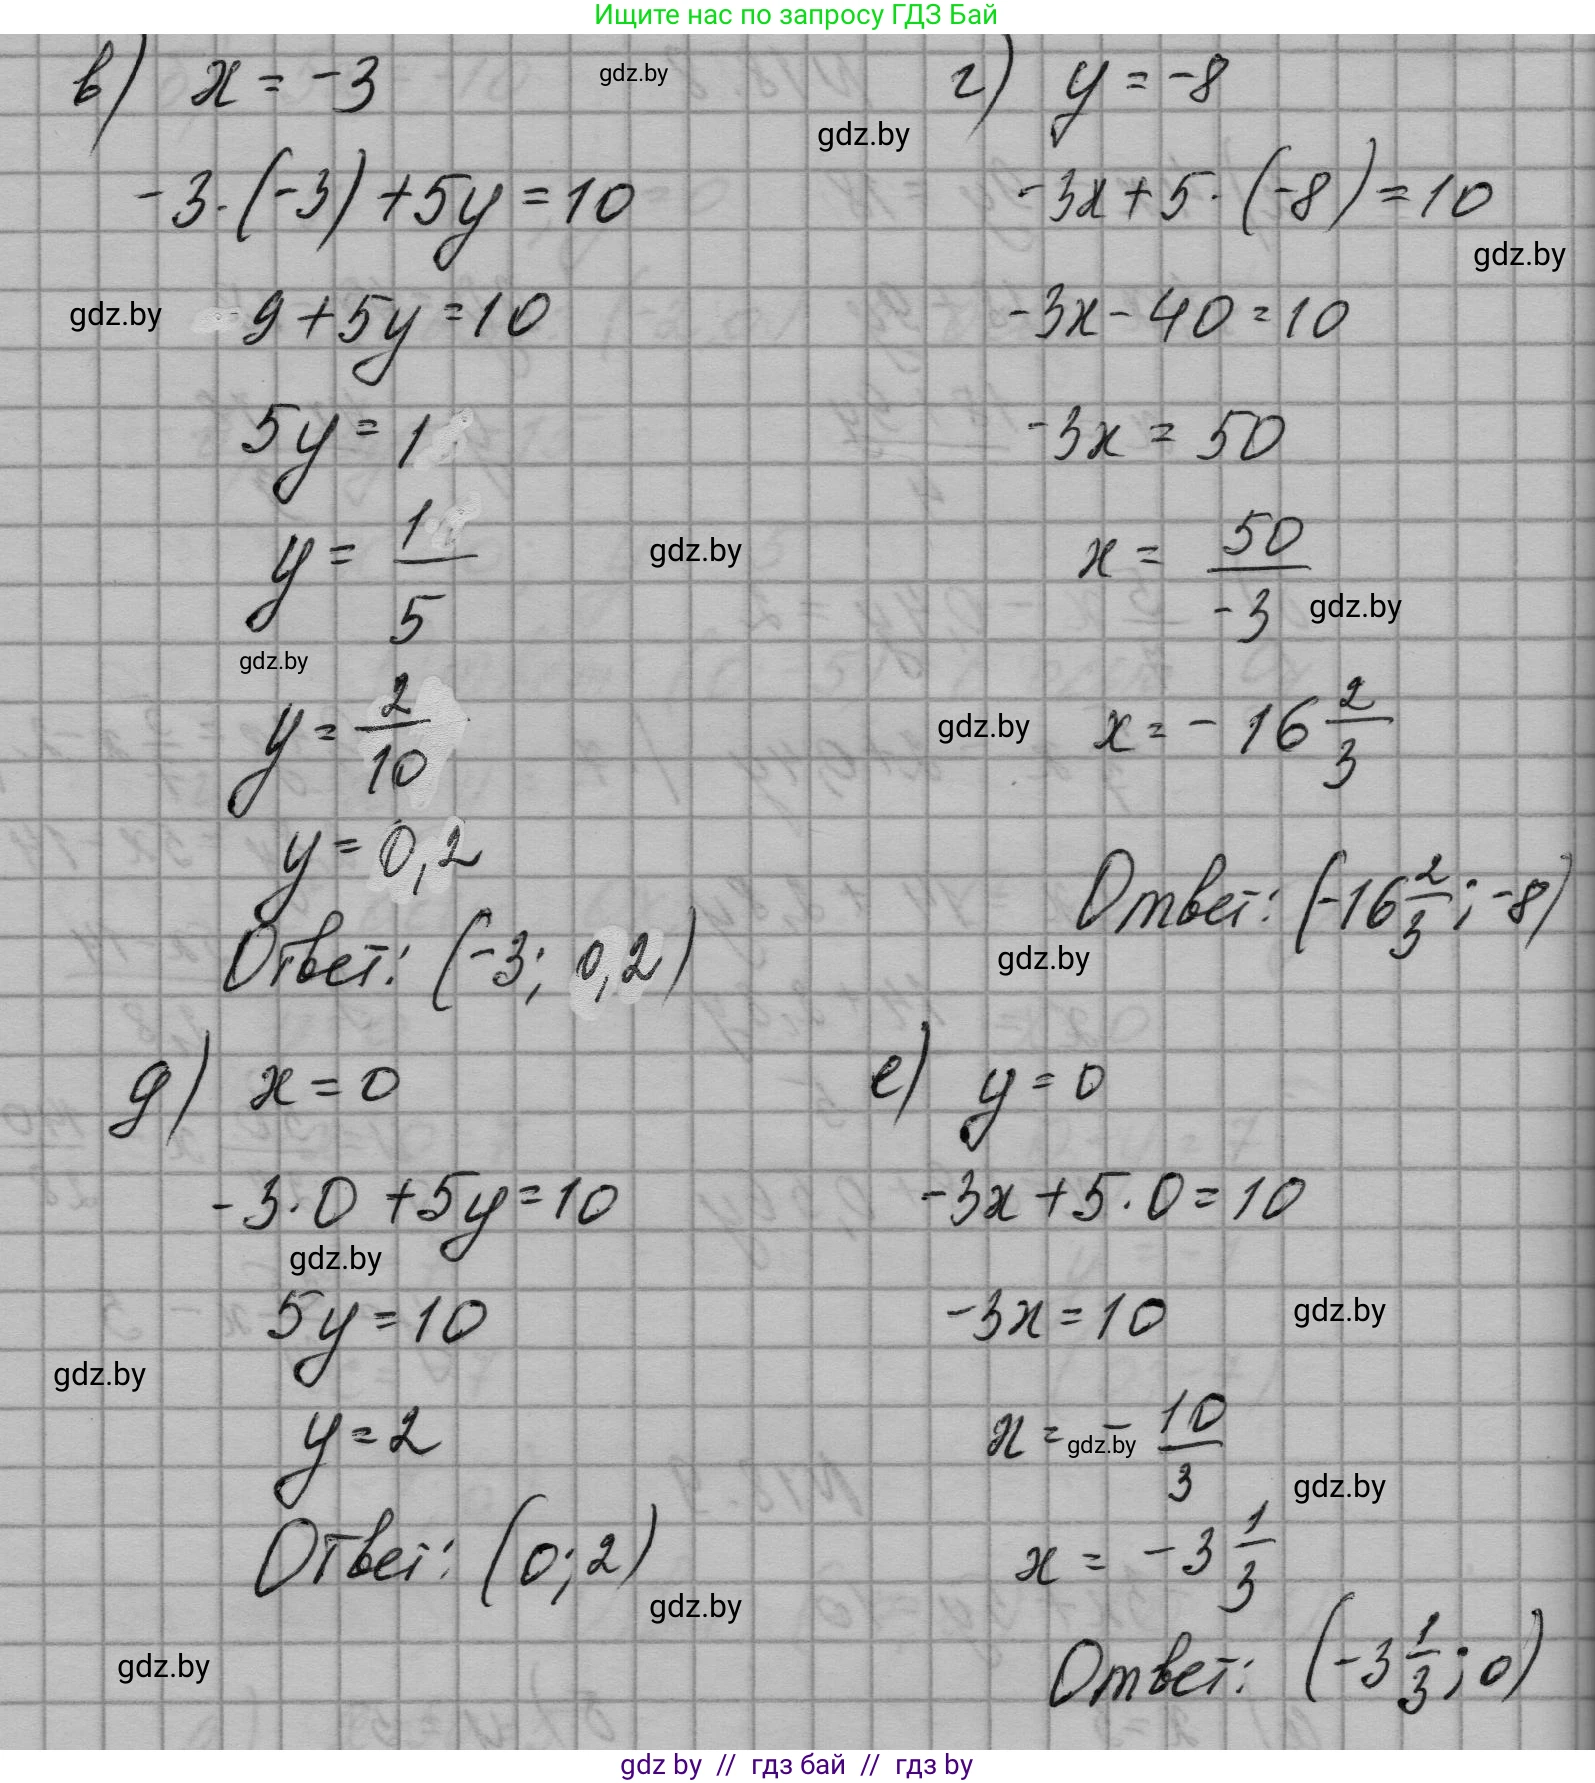 Ищите нас по запросу ГДЗ Бай
в) x = -3
gdz.by
-3·(-3)+5y=10
gdz.by
9+5y=10
5y=1
y= 1/5
gdz.by
y= 2/10
y=0,2
Ответ: (-3; 0,2)
г) y=-8
gdz.by
-3x+5·(-8)=10
gdz.by
-3x-40=10
-3x = 50
x = 50/-3
gdz.by
gdz.by
gdz.by
x=-16 2/3
Ответ: (-16 2/3; -8)
gdz.by
д) x=0
-3·0+5y=10
gdz.by
5y=10
gdz.by
y=2
Ответ: (0; 2)
gdz.by
gdz.by
е) y=0
-3x+5·0=10
-3x=10
gdz.by
x= - 10/3
gdz.by
gdz.by
x = -3 1/3
Ответ: (-3 1/3; 0)
gdz by // гдз бай // гдз by